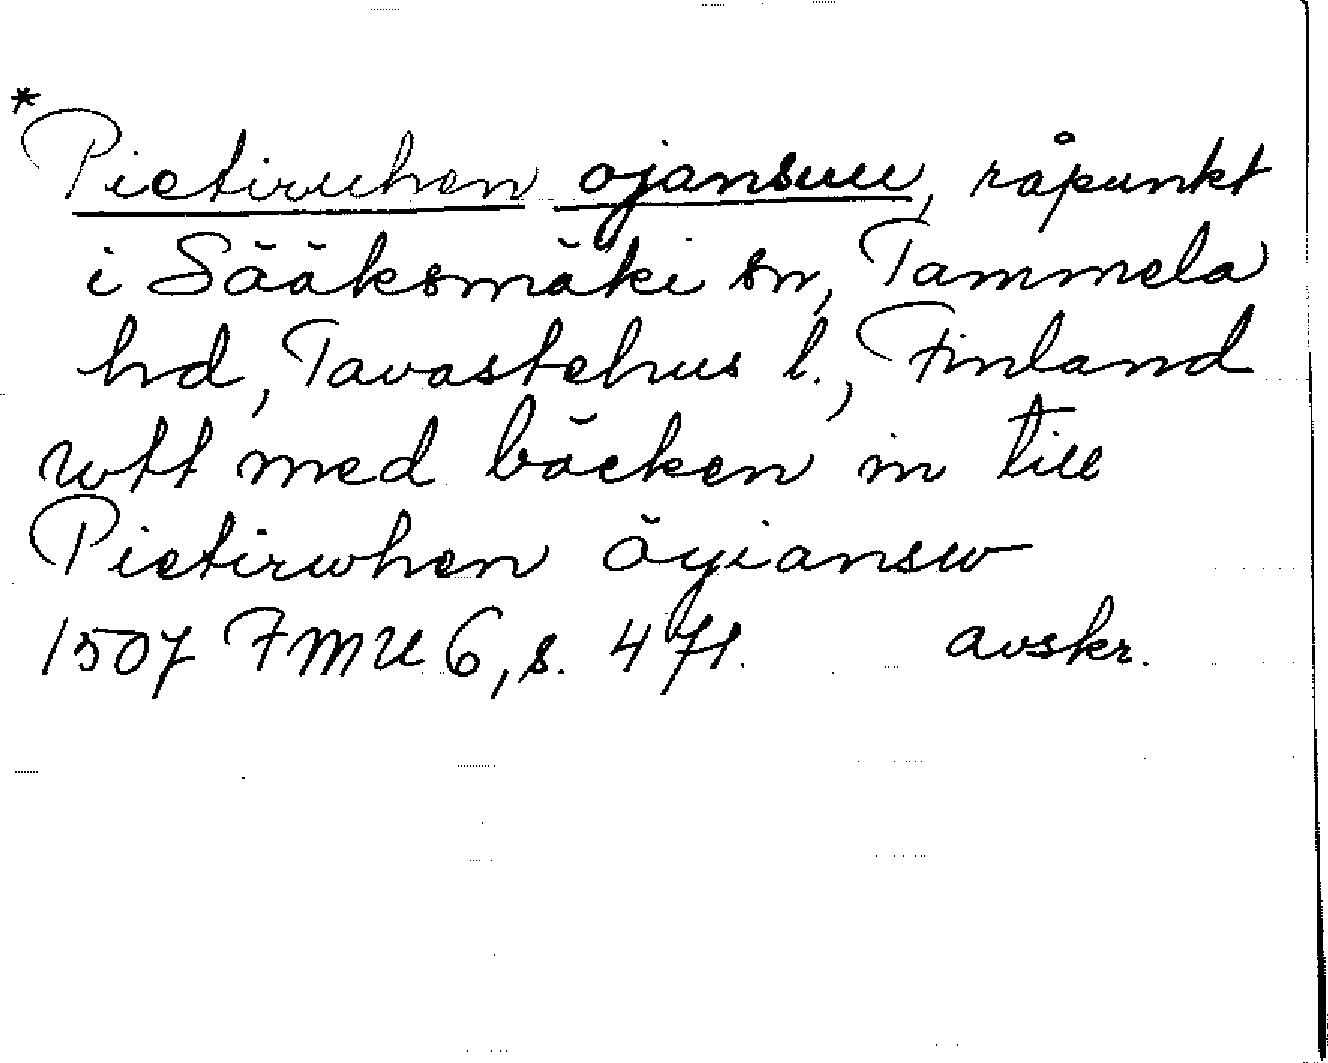 *
Pietiruhen ojansuu, råpunkt
i Sääksmäki sn, Tammela
hd, Tavastehus l., Finland
wtt med bäcken in till
Pietirwhen öyiansw
1507 FMU 6, s. 471. avskr.